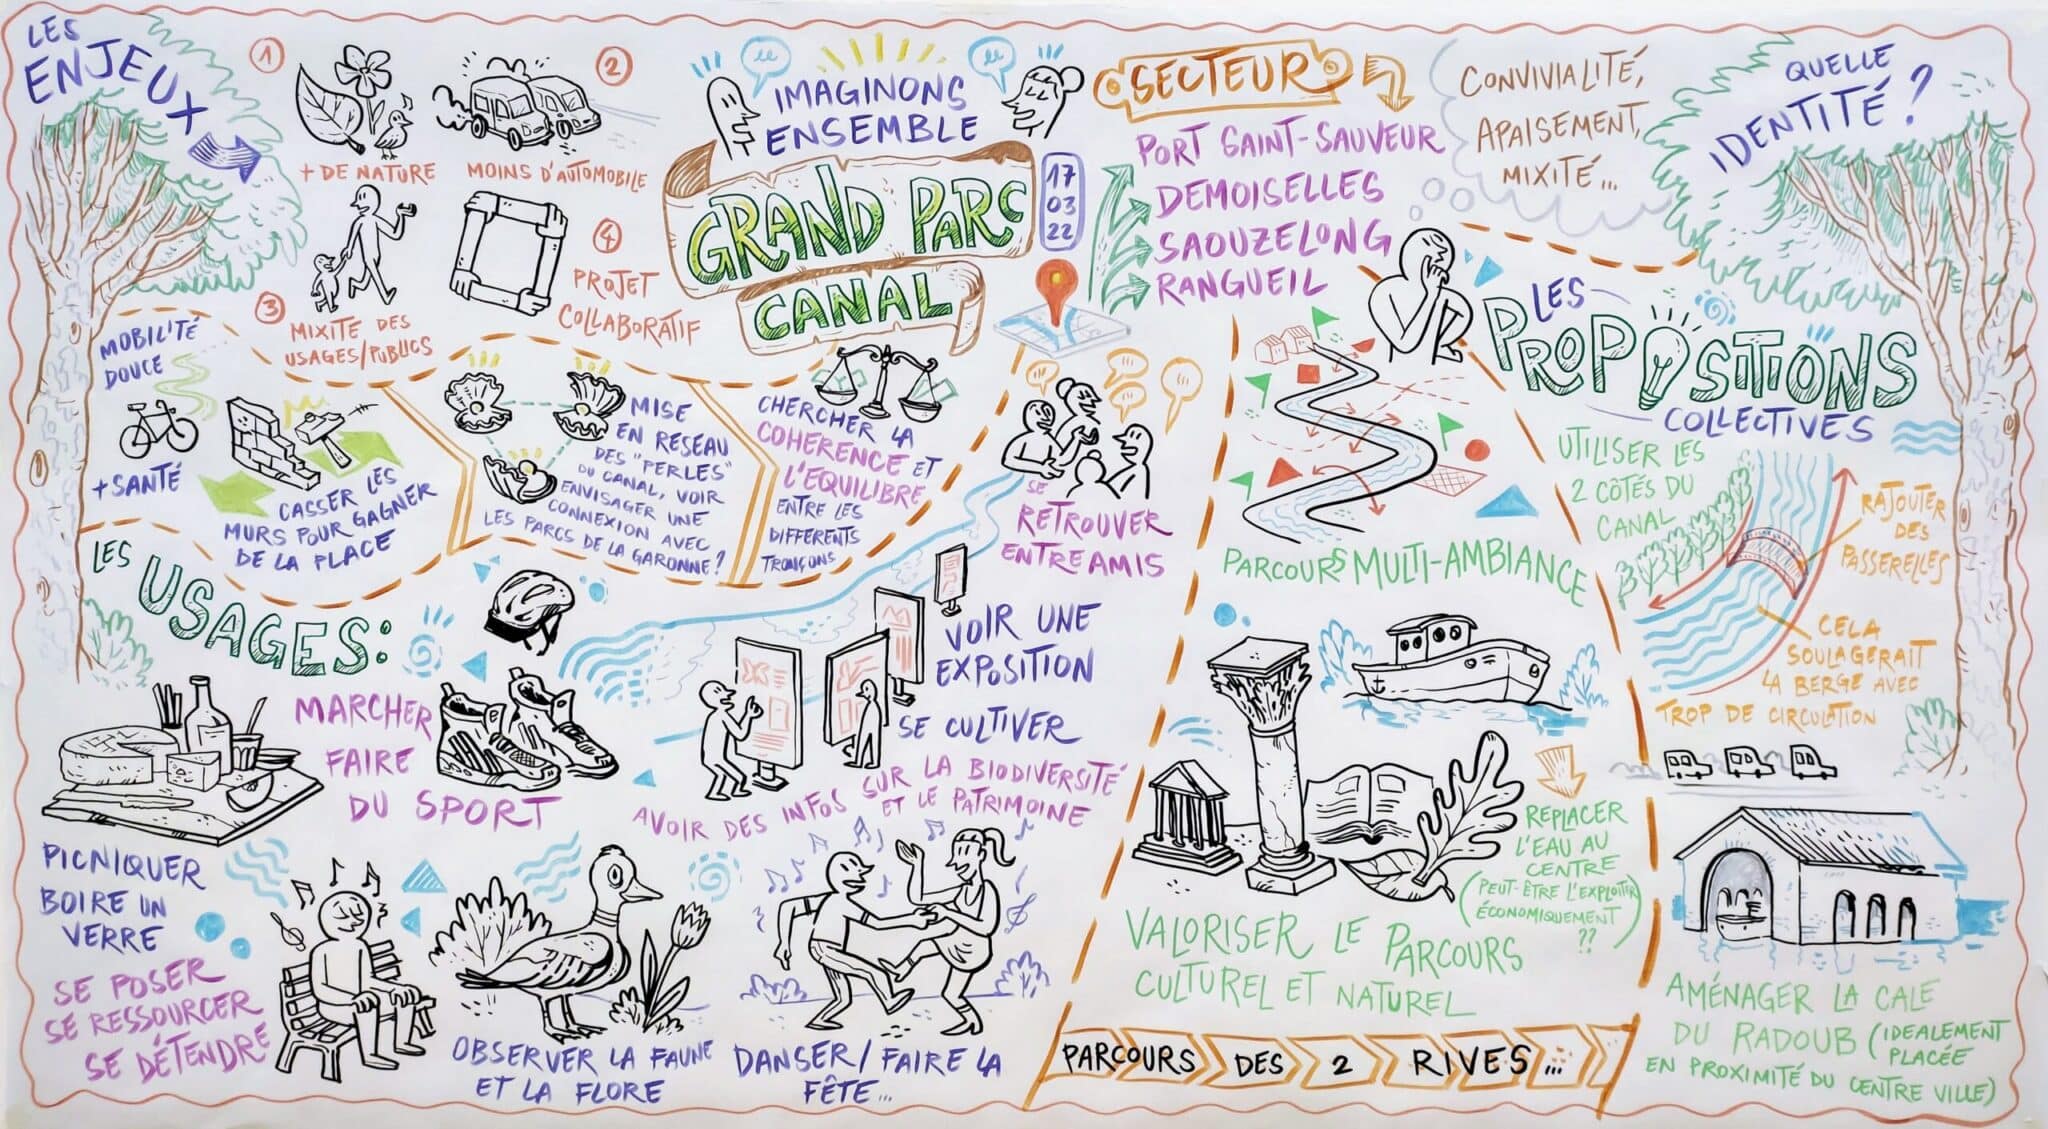 LES
ENJEUX
1
+ DE NATURE
2
MOINS D'AUTOMOBILE
3
MIXITE DES
USAGES/PUBLICS
4
PROJET
COLLABORATIF
IMAGINONS
ENSEMBLE
GRAND PARC
CANAL
17
03
22
SECTEUR
PORT SAINT-SAUVEUR
DEMOISELLES
SAOUZELONG
RANGUEIL
CONVIVIALITÉ,
APAISEMENT,
MIXITÉ...
QUELLE
IDENTITÉ ?
MOBILITÉ
DOUCE
+ SANTÉ
CASSER LES
MURS POUR GAGNER
DE LA PLACE
MISE
EN RESEAU
DES "PERLES"
DU CANAL, VOIR
ENVISAGER UNE
CONNEXION AVEC
LES PARCS DE LA GARONNE ?
CHERCHER LA
COHERENCE ET
L'EQUILIBRE
ENTRE LES
DIFFERENTS
TRONÇONS
LES
USAGES :
SE
RETROUVER
ENTRE AMIS
MARCHER
FAIRE
DU SPORT
VOIR UNE
EXPOSITION
SE CULTIVER
AVOIR DES INFOS SUR LA BIODIVERSITÉ
ET LE PATRIMOINE
PICNIQUER
BOIRE UN
VERRE
SE POSER
SE RESSOURCER
SE DÉTENDRE
OBSERVER LA FAUNE
ET LA FLORE
DANSER / FAIRE LA
FÊTE...
LES
PROPOSITIONS
COLLECTIVES
PARCOURS MULTI-AMBIANCE
UTILISER LES
2 CÔTÉS DU
CANAL
RAJOUTER
DES
PASSERELLES
CELA
SOULAGERAIT
LA BERGE AVEC
TROP DE CIRCULATION
REPLACER
L'EAU AU
CENTRE
(PEUT-ÊTRE L'EXPLOITER
ÉCONOMIQUEMENT
??)
VALORISER LE PARCOURS
CULTUREL ET NATUREL
PARCOURS DES 2 RIVES...
AMÉNAGER LA CALE
DU RADOUB (IDEALEMENT
PLACÉE
EN PROXIMITÉ DU CENTRE VILLE)